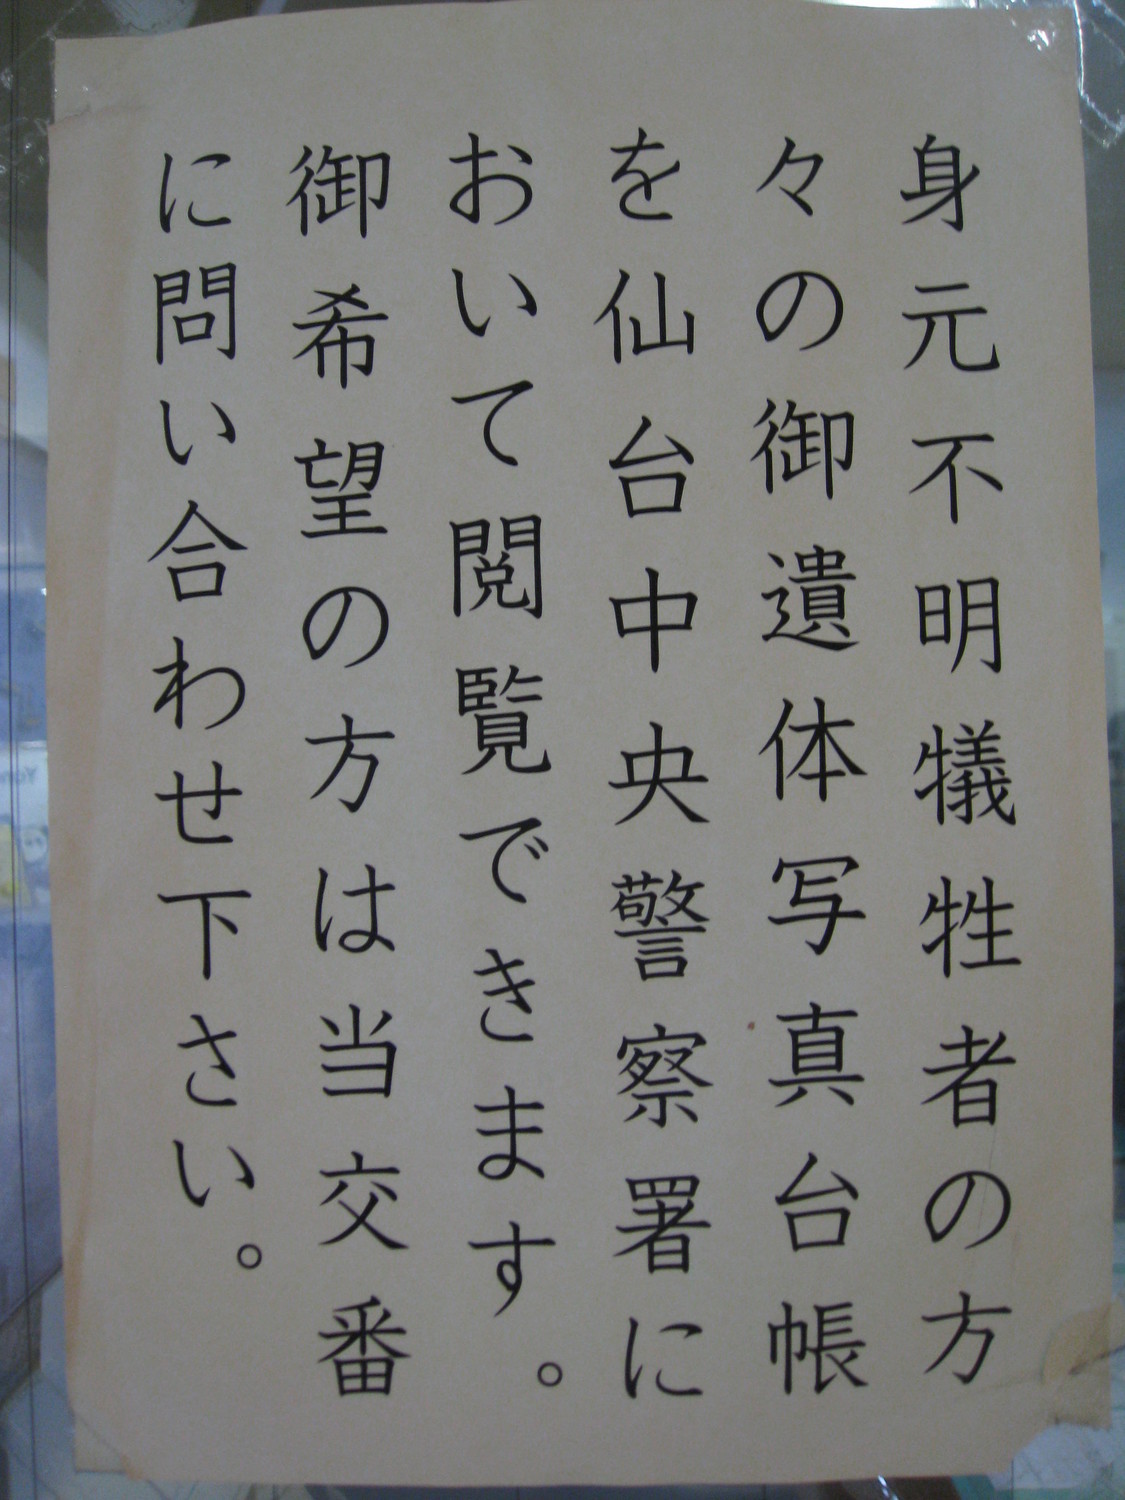 身元不明犠牲者の方
々の御遺体写真台帳
を仙台中央警察署に
おいて閲覧できます。
御希望の方は当交番
に問い合わせ下さい。